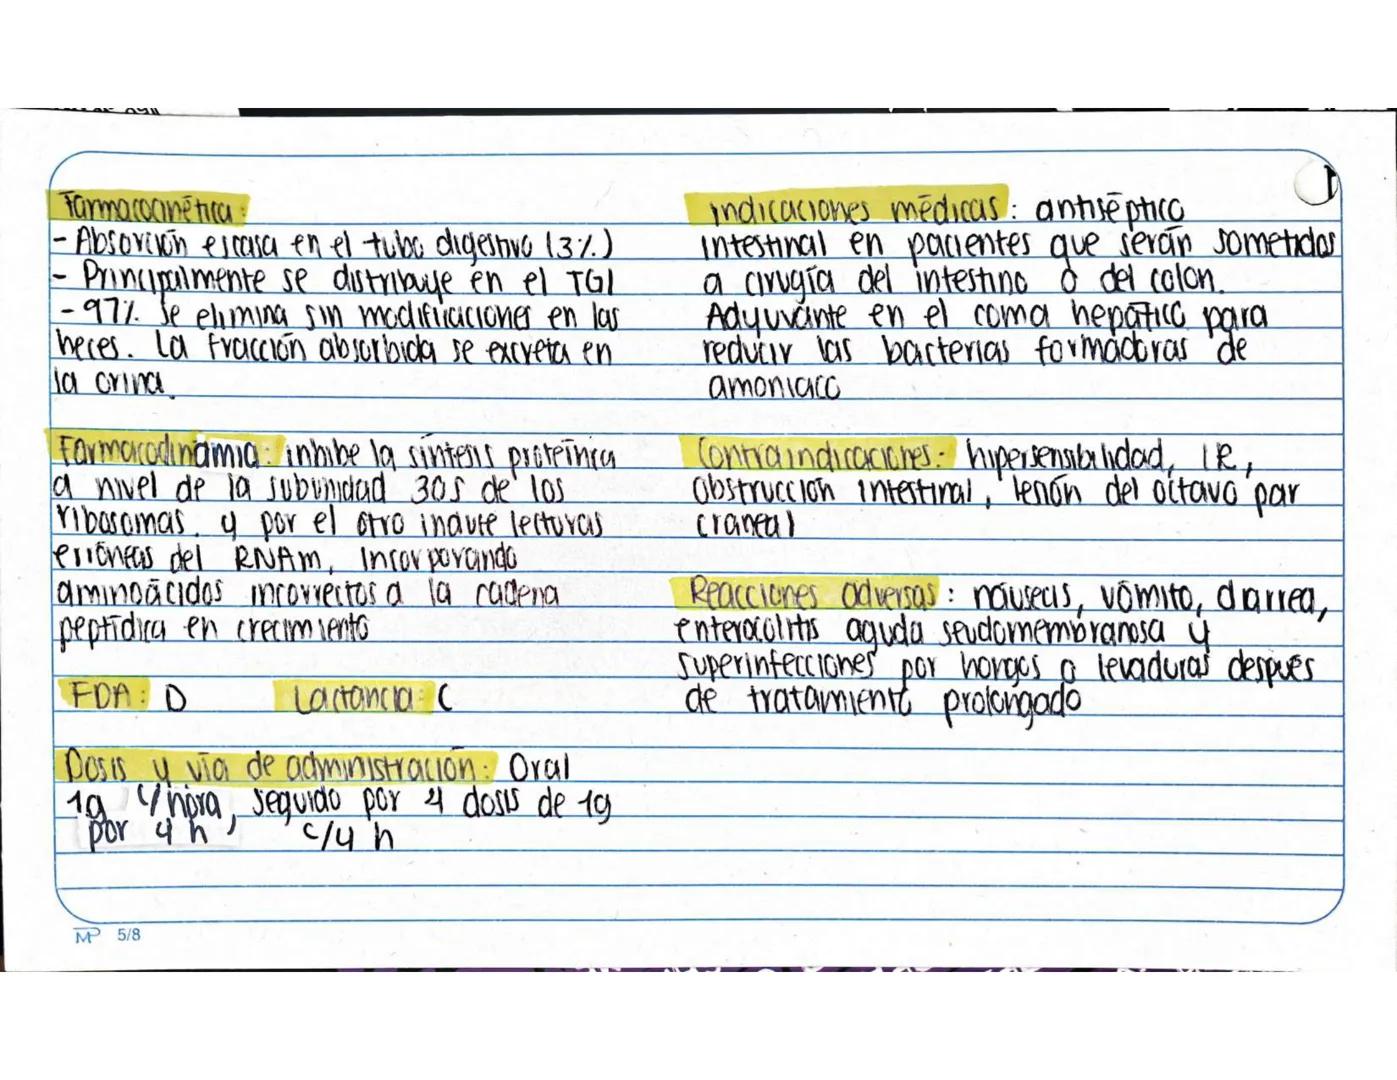 Farmacocinética:
- Absorción escasa en el tubo digestivo (3%)
- Principalmente se distribuye en el TGI
- 97% se elimina sin modificaciones en las
heces. La fracción absorbida se excreta en
la orina.
Farmacodinamia: inhibe la síntesis proteínica
a nivel de la subunidad 30s de los
ribosomas. y por el otro induce lecturas
erróneas del RNAm, incorporando
aminoácidos incorrectos a la cadena
peptídica en crecimiento
FDA: D Lactancia: C
Dosis y vía de administración: Oral
1g c/hora, seguido por 4 dosis de 1g
por 4 h, c/4 h
Indicaciones médicas: antiséptico
intestinal en pacientes que serán sometidos
a cirugía del intestino o del colon.
Adyuvante en el coma hepático para
reducir las bacterias formadoras de
amoniaco
Contraindicaciones: hipersensibilidad, IR,
obstrucción intestinal, lesión del octavo par
craneal
Reacciones adversas: náuseas, vómito, diarrea,
enterocolitis aguda seudomembranosa y
superinfecciones por hongos o levaduras después
de tratamiento prolongado
MP 5/8